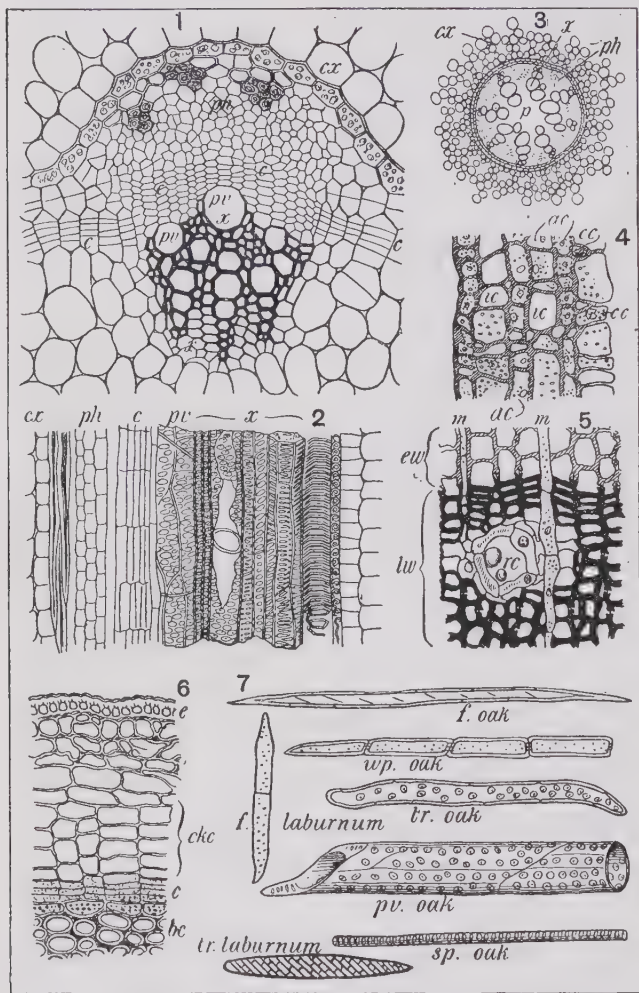 1
cx
ph
c
c
pv
x
pv
c
c
x
3
cx
x
ph
p
4
ac
cc
ic
ic
cc
ac
cx
ph
c
pv
x
2
5
m
m
ew
lw
rc
6
e
ckc
c
bc
7
f. oak
wp. oak
f. laburnum
tr. oak
pv. oak
tr. laburnum
sp. oak